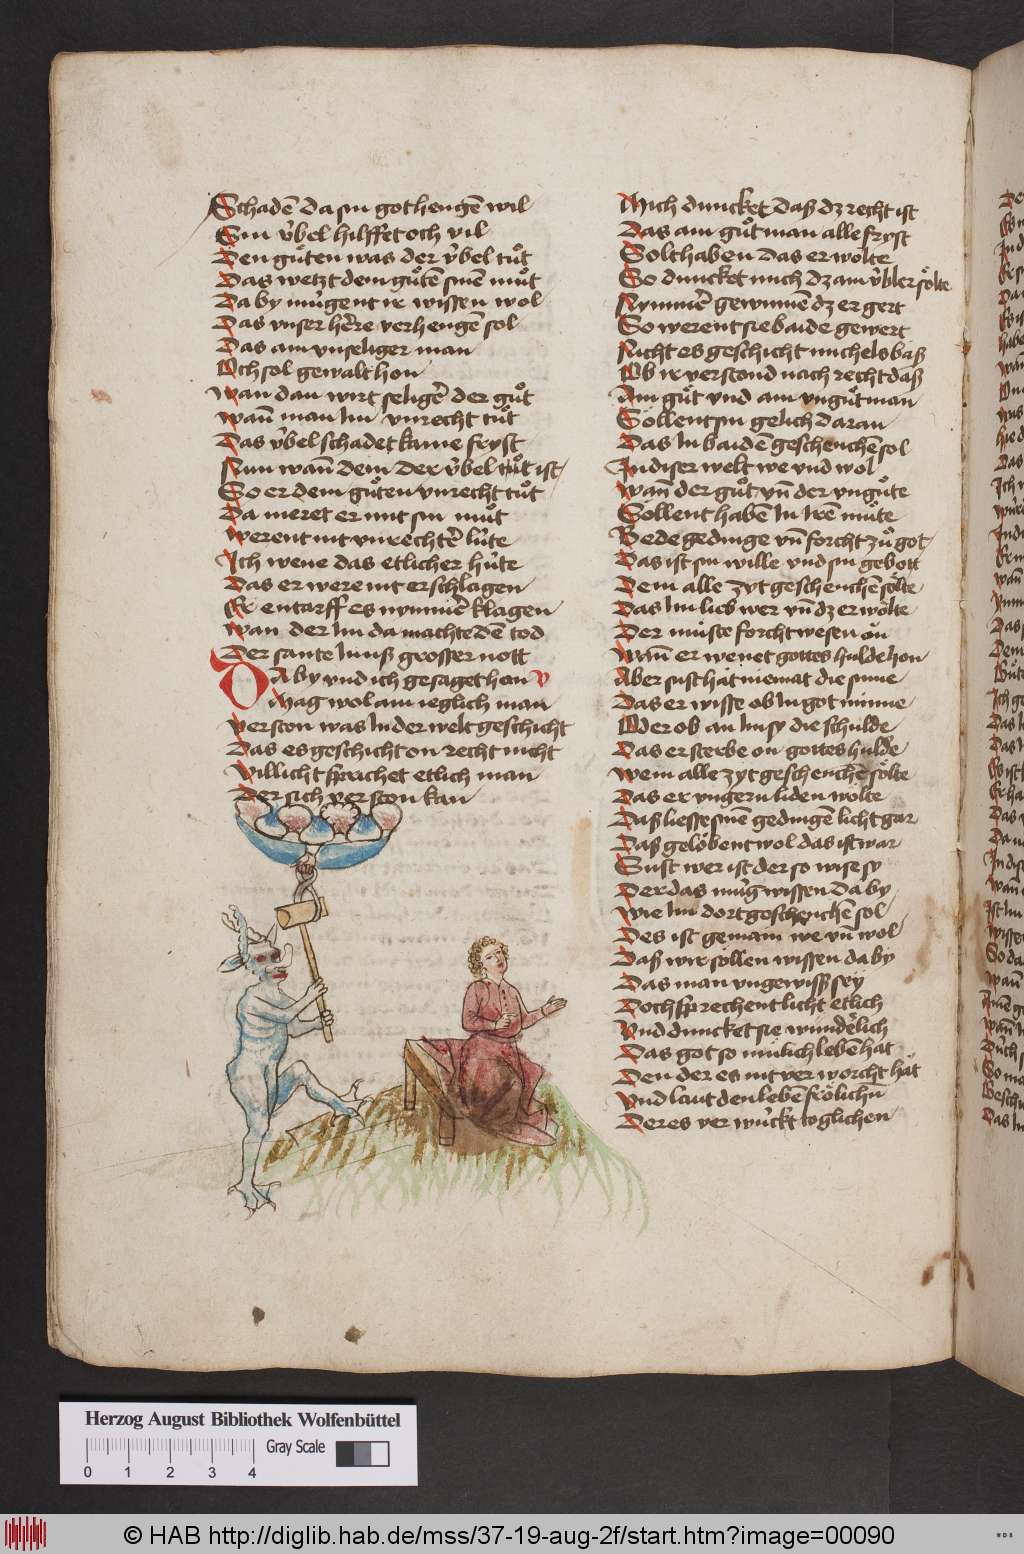 Schadē da sin got hengē wil
Ein v̇bel hilffet och vil
Den guͦten was der v̇bel tuͦt
Das wetzt dem guͦtē sinē muͦt
Da by mu̇gent ir wissen wol
Das vnser hēre verhengē sol
Das am vnseliger man
Och sol gewalt hon
wan dan wirt seligē der guͦt
wañ man im vnrecht tuͦt
Das v̇bel schadet kaine fryst
Nun wañ dem der v̇bel tuͦt ist
So er dem guͦten vnrecht tuͦt
Da meret er mit sin muͦt
werent nit vnrechtē lu̇te
Ich wene das etlicher hu̇te
Das er were nit erschlagen
Er entarff es nymmē klagen
wan der im da machte dē tod
Der sante in uß grosser nott
Da by vnd ich gesaget han
Mag wol am ieglich man
verston was in der welt geschicht
Das es geschicht on recht nicht
Villicht sprichet etlich man
Der sich verston kan
Mich duncket daß dz recht ist
Das am guͦt man alle fryst
Solt haben das er wolte
So duncket mich dz am v̇bler soͤlte
Nymmē gewinnē dz er gert
So werent sie baide gewert
Nicht es geschicht michels baß
Ob ir verstond nach recht daß
Am guͦt vnd am vnguͦt man
Sollent sin gelich daran
Das in baidē geschenchē sol
In diser welt we vnd wol
wañ der guͦt vñ der vnguͦte
Sollent habē in irē muͦte
Bede gedinge vñ forcht zuͦ got
Das ist sin wille vnd sin gebott
Dem alle zyt geschenchē soͤlte
Das im lieb wer vñ dz er woͤlte
Der muͤste forcht wesen on
Wañ er wenet gottes hulde hon
Aber sust hat niemat die sinne
Das er wisse ob in got minne
Oder ob an im sy die schulde
Das er sterbe on gottes hulde
wem alle zyt geschenchē soͤlte
Das er vngern liden woͤlte
Daß liesse sinē gedingē licht gar
Daß gelobent wol das ist war
Sust wer ist der so wise sy
Der das mu̇g wissen da by
wie im dort geschenchē sol
Des ist gemain we vñ wol
Daß wir soͤllen wissen da by
Das man vngewiß sey
Doch sprechent licht etlich
Vnd duncket sie wundēlich
Das got so milich lebē hat
Den der es nit ver worcht hat
Vnd laut den lebē froͤlichn
Der es ver wu̇ckt toglichen
Herzog August Bibliothek Wolfenbüttel
Gray Scale
0 1 2 3 4
© HAB http://diglib.hab.de/mss/37-19-aug-2f/start.htm?image=00090